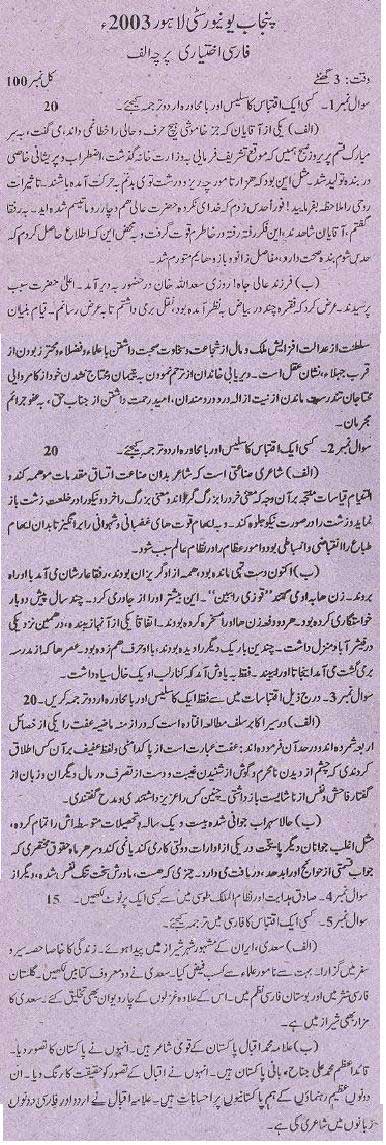 پنجاب یونیورسٹی لاہور 2003ء
فارسی اختیاری پرچہ الف
وقت: 3 گھنٹے کل نمبر 100
سوال نمبر 1۔ کسی ایک اقتباس کا سلیس اور بامحاورہ اردو ترجمہ کیجئے۔ 20
(الف) یکی از آقایان کہ جز خاموشی ہیچ حرف و حالی را خطا نمی داند، می گفت، بہ سر
مبارک قسم پریروز صبح ہمیں کہ موقع تشریف فرمایی بہ وزارت خانہ گذشت، اضطراب و پریشانی خاصی
در بندہ تولید شد۔ مثل این بود کہ ہزارتا مورچہ ریز و درشت توی بدنم بہ حرکت آمدہ باشند۔ تاثیرات
روحی را ملاحظہ بفرمایید! فوراً حدس زدم کہ خدای نکردہ حضرت عالی ہم دچار روماتیسم شدہ اید۔ بہ رفقا
گفتم، آقایان شاہدند، این فکر رفتہ رفتہ در خاطرم قوت گرفت و بہ محض این کہ اطلاع حاصل کردم کہ
حدس شوم بندہ صحت دارد، مفاصل زانو و بازوہایم متورم شد۔
(ب) فرزند عالی جاہ! روزی سعد اللہ خان در حضور بہ دیر آمد۔ اعلیٰ حضرت سبب
پرسیدند۔ عرض کرد کہ فقرہ چند در بیاض بہ نظر آمدہ بود، نقل بر می داشتم تا بہ عرض رسانم۔ قیام بنیان
سلطنت از عدالت افزایش ملک و مال از شجاعت و سخاوت صحبت داشتن با علماء و فضلاء و محترز بودن از
قرب جہلاء، نشان عقل است۔ و بر پائی خاندان از ترحم نمودن بہ یتیمان و محتاج نشدن خود از کامروایی
محتاجان تندرست ماندن از نیت ازالہ درد دردمندان، امید رحمت داشتن از جناب حق، بہ عفو جرائم
مجرمان۔
سوال نمبر 2۔ کسی ایک اقتباس کا سلیس اور بامحاورہ اردو ترجمہ کیجئے۔ 20
(الف) شاعری صناعتی است کہ شاعر بدان صناعت اتساق مقدمات موہمہ کند و
التئام قیاسات منتجہ بر آن وجہ کہ معنی خرد را بزرگ گرداند و معنی بزرگ را خرد و نیکو را در خلعت زشت باز
نماید و زشت را در صورت نیکو جلوہ کند۔ و بہ ایہام قوت ہای غضبانی و شہوانی را برانگیزد تا بدان ایہام
طباع را انقباضی و انبساطی بود و امور عظام را در نظام عالم سبب شود۔
(ب) اکنون دست تہی ماندہ بود، ہمہ از او گریزان بودند، رفقا عارشان می آمد با او راہ
بروند۔ زن ہا بہ او می گفتند "قوزی را ببین"۔ این بیشتر او را از جا در می کرد۔ چند سال پیش دو بار
خواستگاری کردہ بود۔ ہر دو دفعہ زن ہا او را مسخرہ کردہ بودند۔ اتفاقاً یکی از آنہا زیبندہ، در ہمین نزدیکی
در فیشرآباد منزل داشت۔ چندین بار یک دیگر را دیدہ بودند، با او حرف ہم زدہ بود۔ عصرہا کہ از مدرسہ
برمی گشت می آمد اینجا تا او را ببیند۔ فقط بہ یادش می آمد کہ کنار لب او یک خال سیاہ داشت۔
سوال نمبر 3۔ درج ذیل اقتباسات میں سے فقط ایک کا سلیس اور بامحاورہ اردو ترجمہ کریں۔ 20
(الف) در سیر اکابر سلف مطالعہ افتادہ است کہ در ازمنہ ماضیہ عفت را یکی از خصائل
اربعہ شمردہ اند و در حد آن فرمودہ اند: عفت عبارت است از پاکدامنی و لفظ عفیف بر آن کس اطلاق
کردندی کہ چشم از دیدن نامحرم و گوش از شنیدن غیبت و دست از تصرف در مال دیگران و زبان از
گفتار فاحش و نفس از ناشایست باز داشتی۔ چنین کس را عزیز داشتندی و مدح گفتندی۔
(ب) حالا سہراب جوانی شدہ بیست و یک سالہ، تحصیلات متوسطہ اش را تمام کردہ،
مثل اغلب جوانان دیگر پایتخت در یکی از ادارات دولتی کاری کندیا نمی کند و سر ہر ماہ حقوق مختصری کہ
جواب قسمتی از حوائج او را بدہد، دریافت می دارد۔ چیزی کہ ہست، مادرش سخت تنگ نفس شدہ، دیگر از
سوال نمبر 4۔ صادق ہدایت اور نظام الملک طوسی میں سے کسی ایک پر نوٹ لکھیں۔ 15
سوال نمبر 5۔ کسی ایک اقتباس کا فارسی میں ترجمہ کیجئے۔
(الف) سعدی، ایران کے مشہور شہر شیراز میں پیدا ہوئے۔ زندگی کا خاصا حصہ سیر و
سفر میں گزارا۔ بہت سے نامور علماء سے کسب فیض کیا۔ سعدی نے دو معروف کتابیں لکھیں۔ گلستان
فارسی نثر میں اور بوستان فارسی نظم میں۔ اس کے علاوہ غزلوں کے چار دیوان بھی تخلیق کئے۔ سعدی کا
مزار بھی شیراز میں ہے۔
(ب) علامہ محمد اقبال پاکستان کے قومی شاعر ہیں۔ انہوں نے پاکستان کا تصور دیا۔
قائداعظم محمد علی جناح، بانی پاکستان ہیں۔ انہوں نے اقبال کے تصور کو حقیقت کا رنگ دیا۔ ان
دونوں عظیم رہنماؤں کے ہم پاکستانیوں پر احسانات ہیں۔ علامہ اقبال نے اردو اور فارسی دونوں
زبانوں میں شاعری کی ہے۔